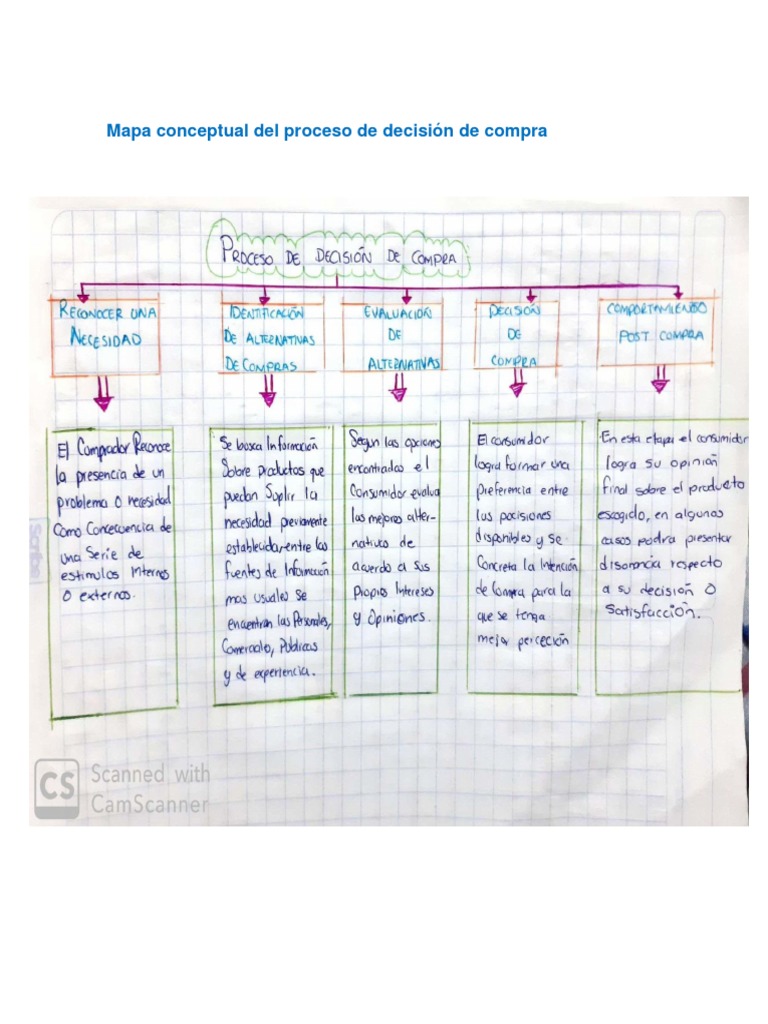 Mapa conceptual del proceso de decisión de compra
PROCESO DE DECISIÓN DE COMPRA
RECONOCER UNA
NECESIDAD
IDENTIFICACIÓN
DE ALTERNATIVAS
DE COMPRAS
EVALUACIÓN
DE
ALTERNATIVAS
DECISIÓN
DE
COMPRA
COMPORTAMIENDO
POST COMPRA
El Comprador Reconoce
la presencia de un
problema o necesidad
Como Concecuencia de
una Serie de
estimulos Internos
O externos.
Se busca Información
Sobre productos que
puedan Suplir la
necesidad previamente
establecida, entre las
fuentes de Información
mas usuales se
encuentran las Personales,
Comerciales, Públicas
y de experiencia.
Segun las opciones
encontradas el
Consumidor evalua
las mejores alter-
nativas de
acuerdo a sus
Propios Intereses
y Opiniones.
El consumidor
logra formar una
Preferencia entre
las posisiones
disponibles y se
Concreta la Intención
de Compra para la
que se tenga
mejor perceción
En esta etapa el consumidor
logra su opinión
final sobre el producto
escogido, en algunos
casos podra presentar
disonancia respecto
a su decisión O
Satisfacción.
Scribe
CS Scanned with
CamScanner